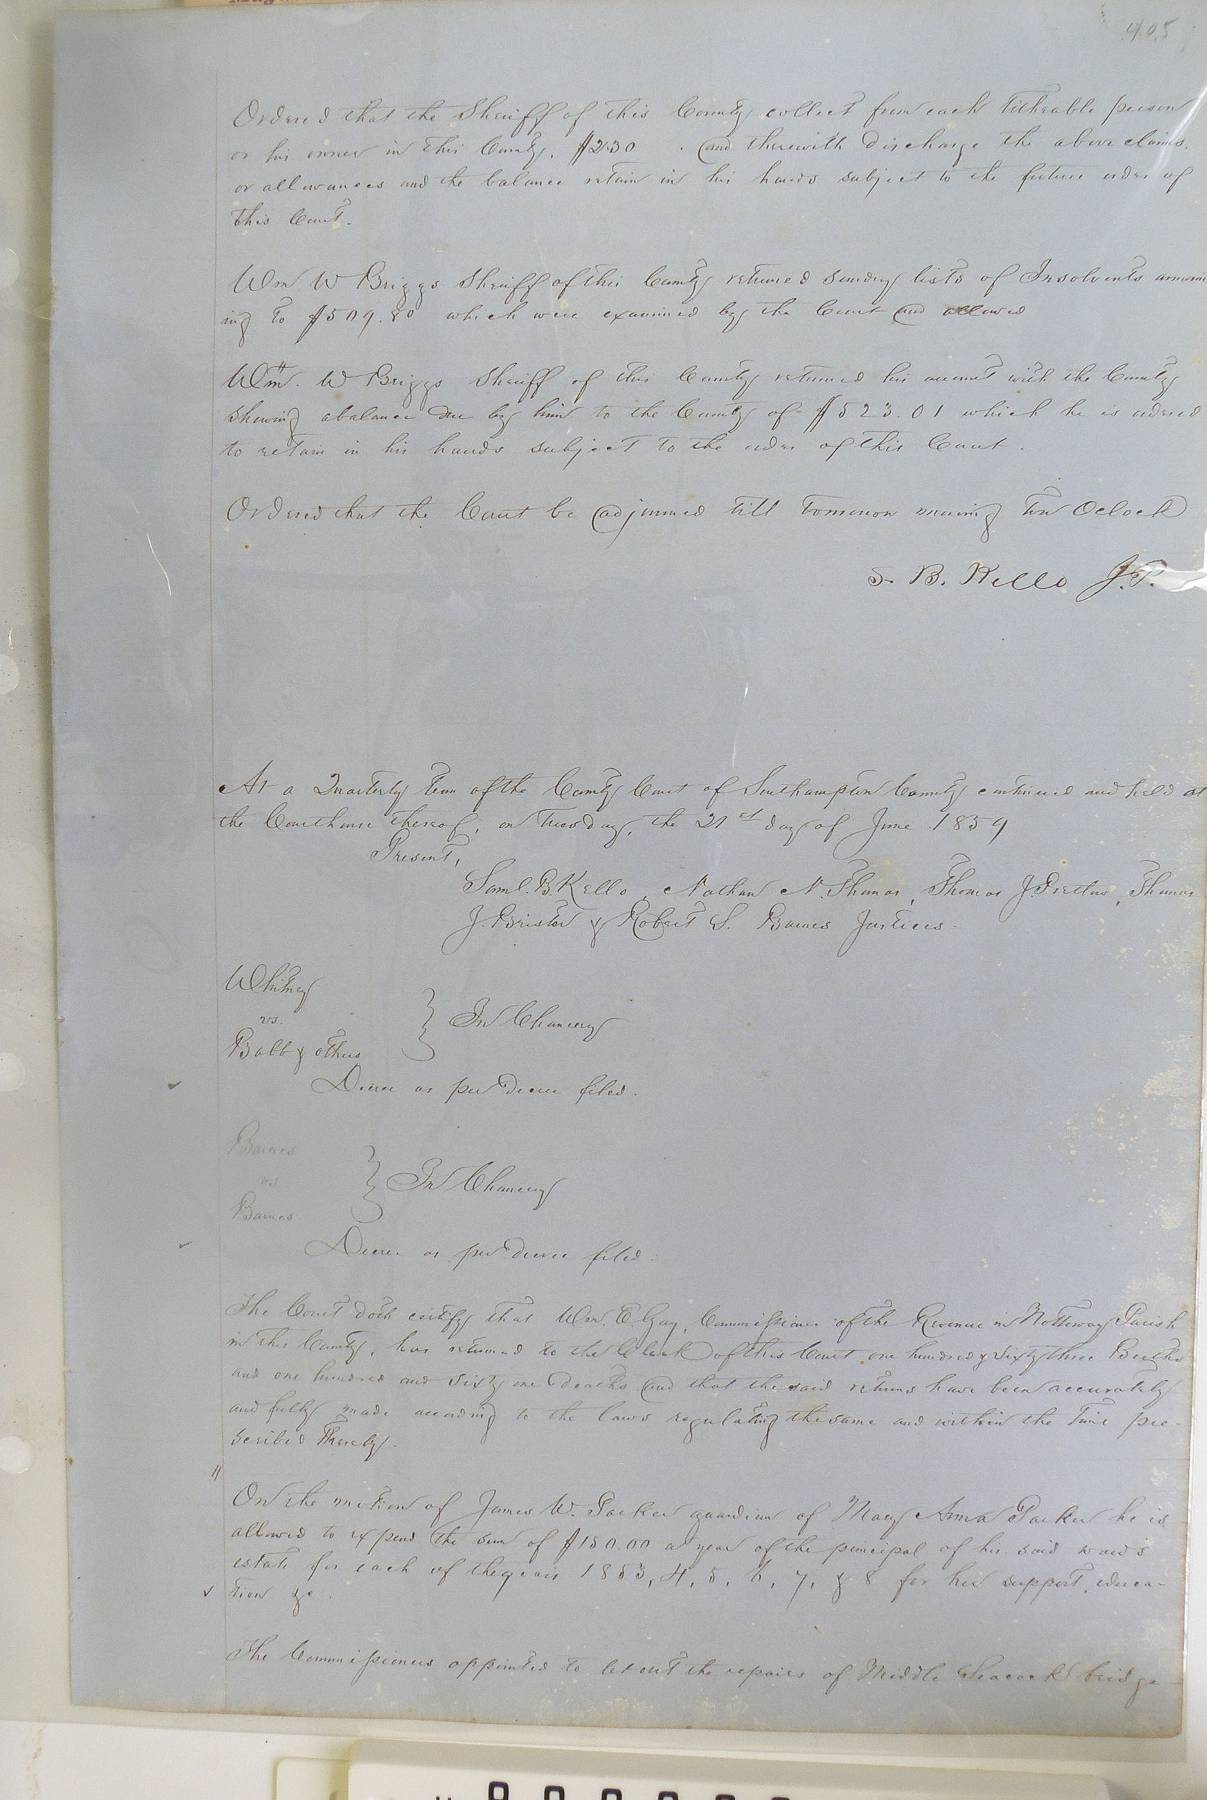 405
Ordered that the Sheriff of this County collect from each titheable person
or his owner in this County, $2.30. and therewith discharge the above claims
or allowances and the balance retain in his hands subject to the future order of
this Court.
Wm W Briggs Sheriff of this County returned sundry lists of Insolvents amount
ing to $509.80 which were examined by the Court and allowed
Wm. W Briggs Sheriff of this County returned his account with the County
shewing a balance due by him to the County of $523.01 which he is ordered
to retain in his hands subject to the order of this Court.
Ordered that the Court be adjourned till tomorrow morning Ten Oclock
S. B. Kello J.P.
At a Quarterly term of the County Court of Southampton County continued and held at
the Courthouse thereof, on Tuesday, the 21st day of June 1859
Present,
Saml. B Kello, Nathan N. Thomas, Thomas J. Pretlow, Thomas
J. Brister & Robert S. Barnes Justices.
Whitney
vs.
Babb & others
} In Chancery
Decree as per Decree filed.
Barnes
vs
Barnes
} In Chancery
Decree as per Decree filed.
The Court doth certify that Wm. C. Gay, Commissioner of the Revenue in Nottoway Parish
in this County, has returned to the Clerk of this Court one hundred & sixty three Births
and one hundred and sixty one Deaths and that the said returns have been accurately
and fully made according to the laws regulating the same and within the time pre-
scribed thereby.
On the motion of James W. Parker guardian of Mary Anna Parker he is
allowed to expend the sum of $150.00 a year of the principal of his said ward's
estate for each of the years 1853, 4, 5, 6, 7, & 8 for her support, educa-
tion &c.
The Commissioners appointed to let out the repairs of Middle Seacock bridge